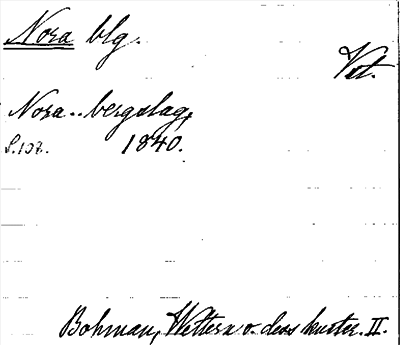 Nora blg.
Vstm.
Nora .. bergslag,
S. 107. 1840.
Bohman, Wettern o. dess kuster. II.